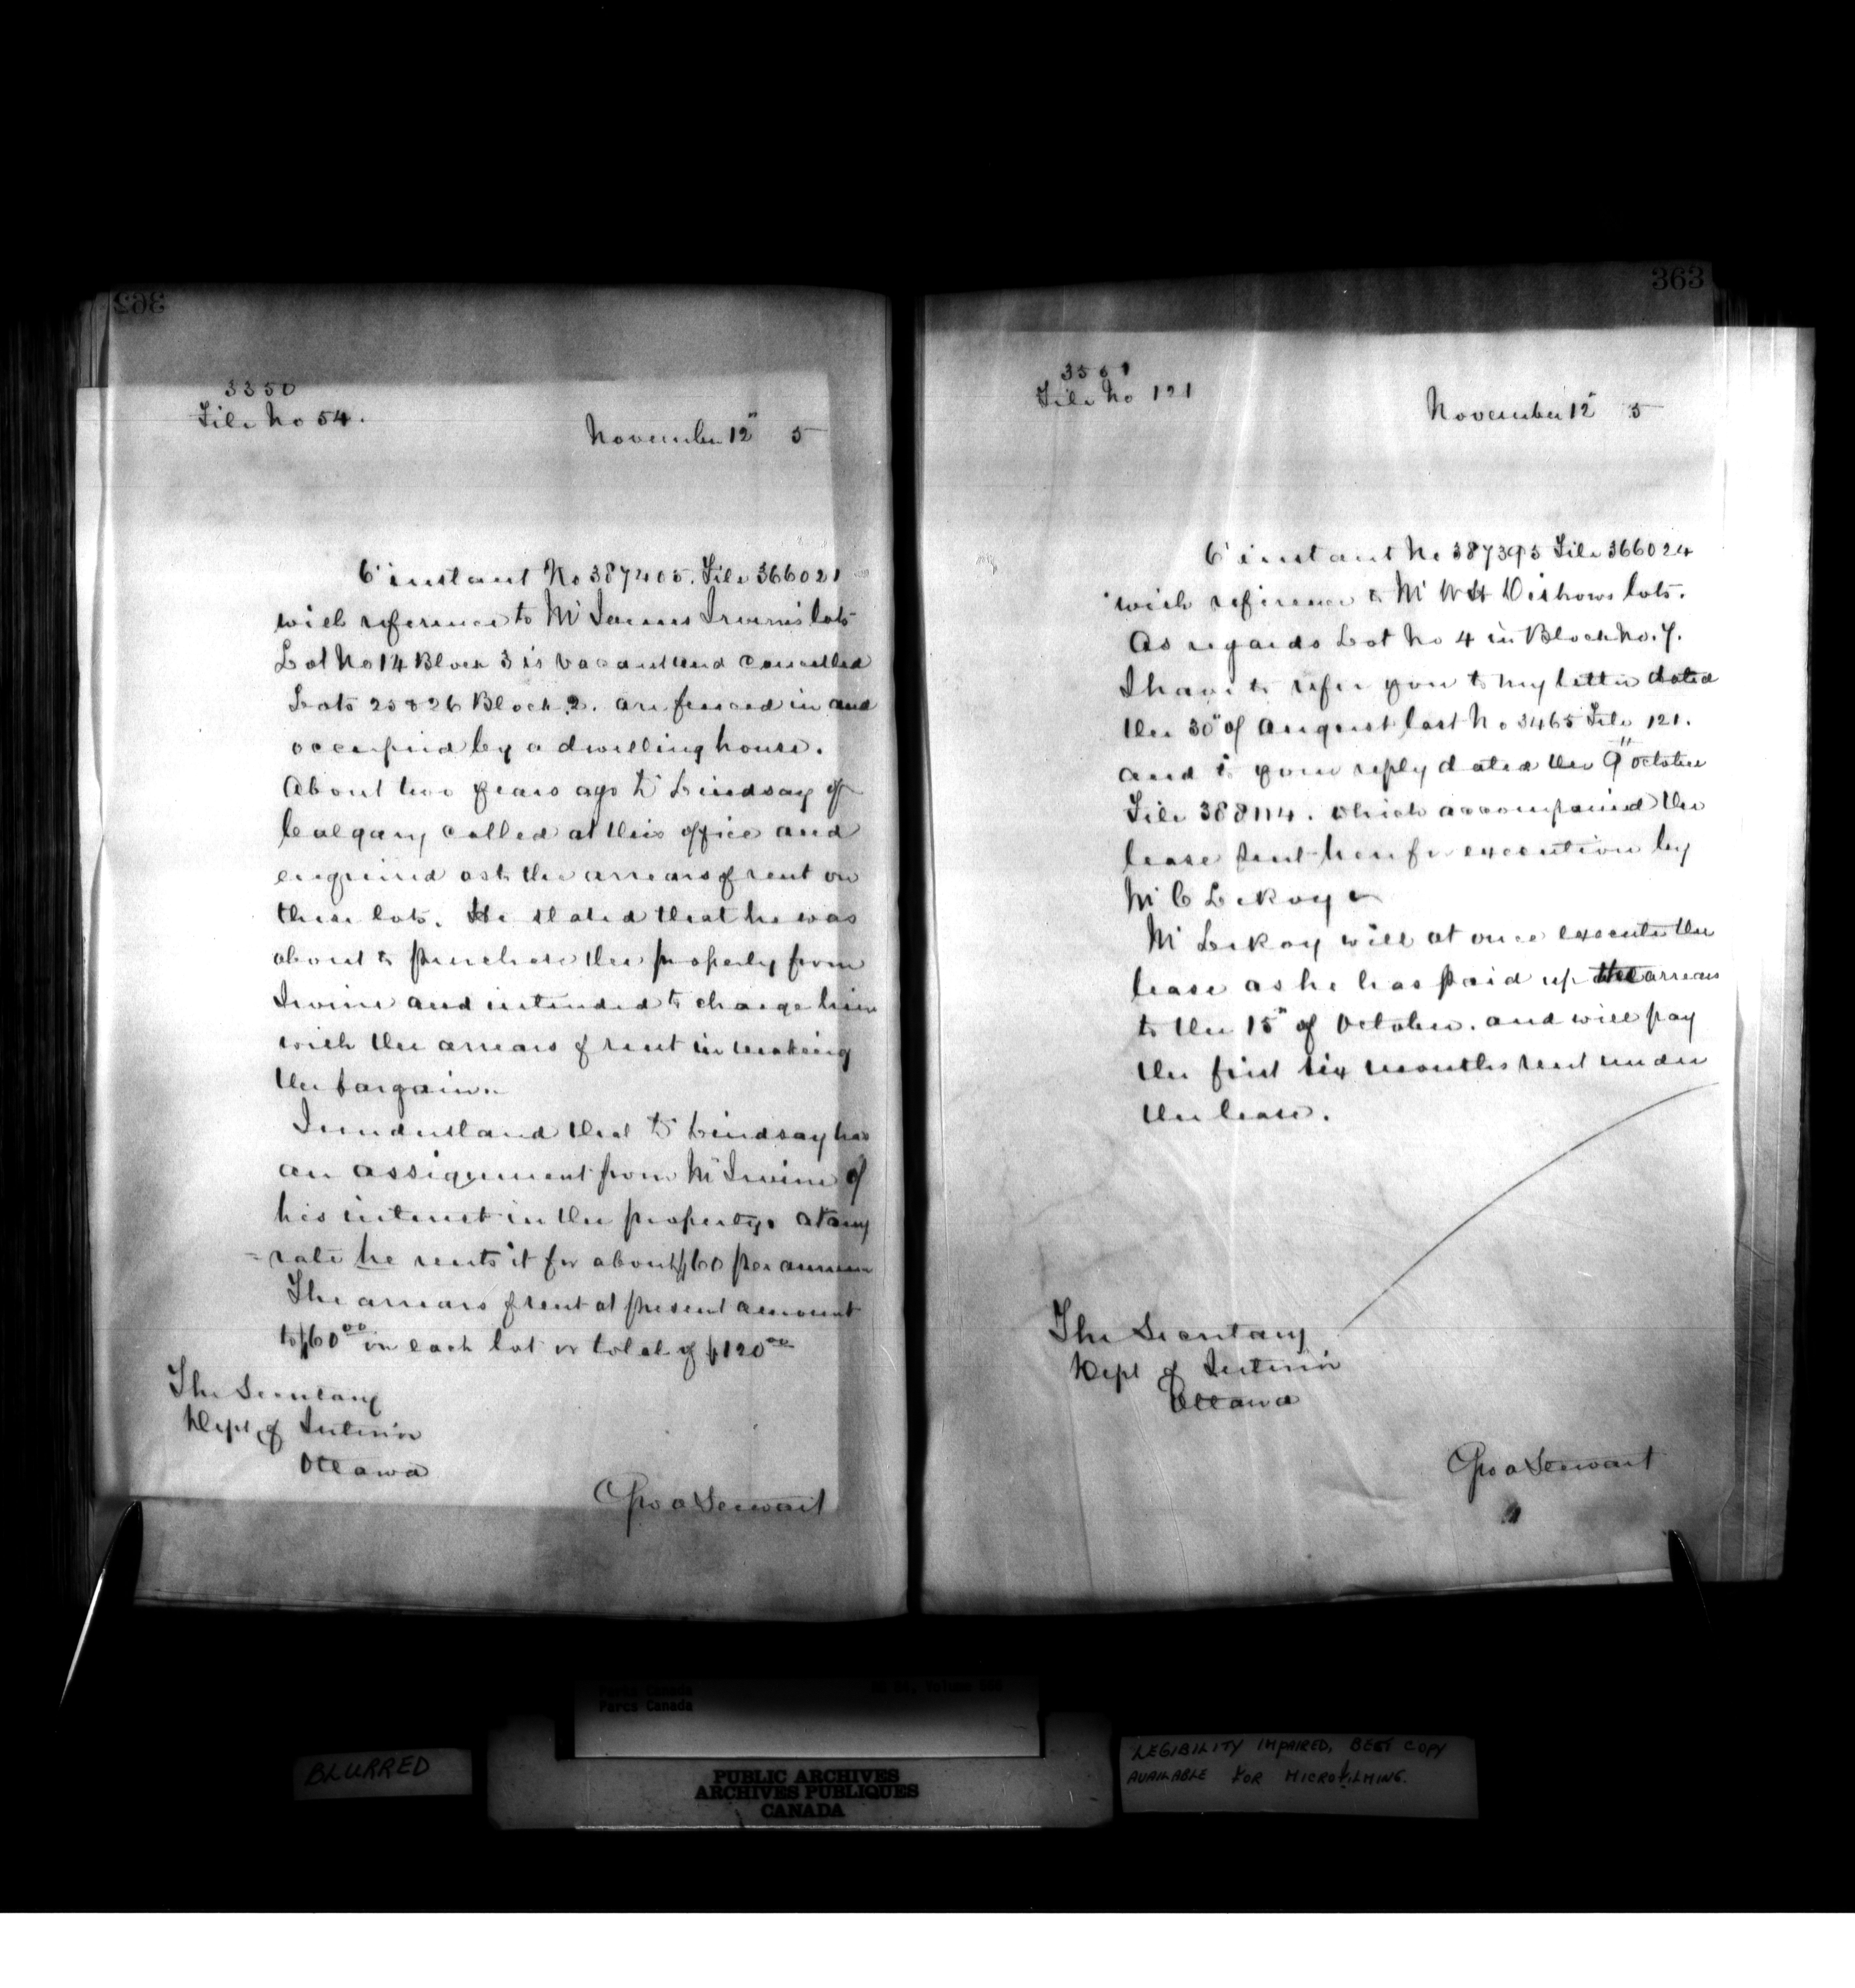 362
3350
File No 54.
November 12" 5
6' instant No 387405. File 366021
with reference to Mr James Irvine's lots
Lot No 14 Block 3 is vacant and cancelled
Lots 25 & 26 Block 2. are fenced in and
occupied by a dwelling house.
About two years ago Dr Lindsay of
Calgary called at this office and
enquired as to the arrears of rent on
these lots. He stated that he was
about to purchase the property from
Irvine and intended to charge him
with the arrears of rent in making
the bargain.
I understand that Dr Lindsay has
an assignment from Mr Irvine of
his interest in the property. At any
rate he rents it for about $60 per annum
The arrears of rent at present amount
to $60 00 on each lot or total of $120 00
The Secretary
Dept of Interior
Ottawa
Geo A Stewart
363
3561
File No 121
November 12" 5
6' instant No 387395 File 366024
with reference to Mr W H Disbrows lots.
As regards Lot No 4 in Block No. 7.
I have to refer you to my letter dated
the 30" of August last No 3465 File 121.
and to your reply dated the 9" October
File 388114. which accompanied the
lease sent here for execution by
Mr C LeRoy
Mr LeRoy will at once execute the
lease as he has paid up the arrears
to the 15" of October. and will pay
the first six months rent under
the lease.
The Secretary
Dept of Interior
Ottawa
Geo A Stewart
Parks Canada
Parcs Canada
BLURRED
PUBLIC ARCHIVES
ARCHIVES PUBLIQUES
CANADA
LEGIBILITY IMPAIRED, BEST COPY
AVAILABLE FOR MICROFILMING.